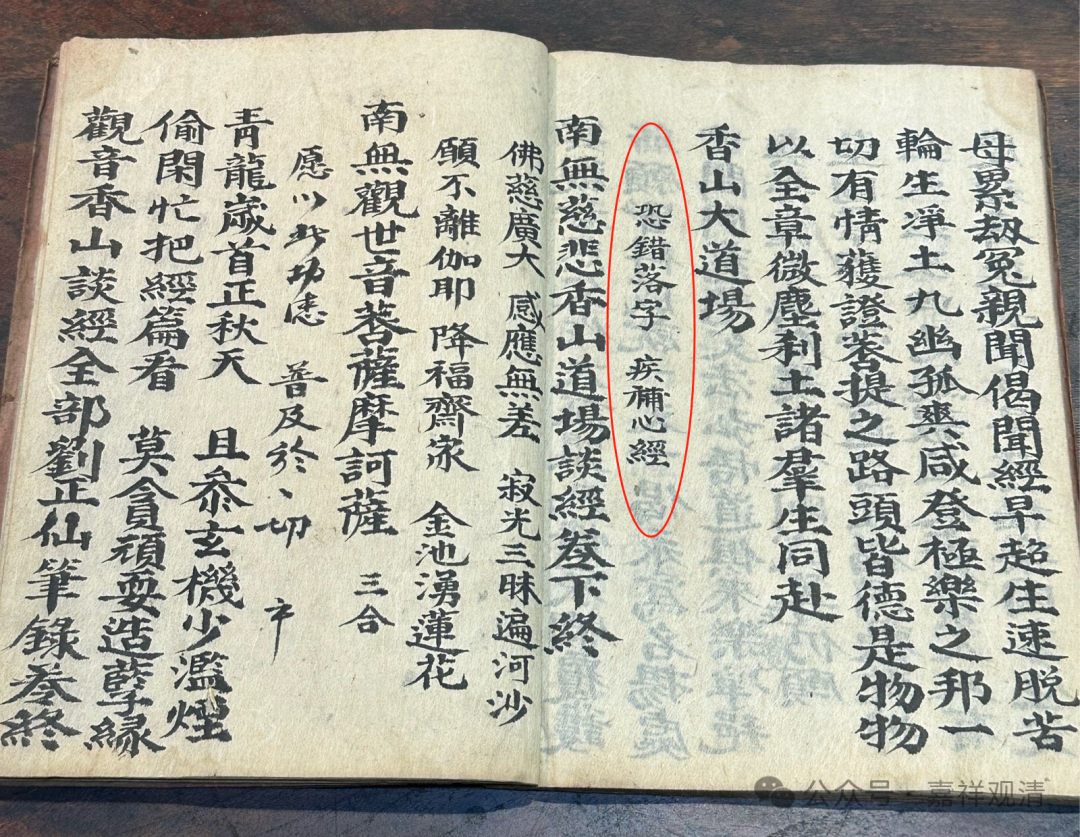 母累劫冤親聞偈聞經早超生速脫苦
輪生凈土九幽孤爽咸登極樂之邦一
切有情蒦證菩提之路頭皆德是物物
以全章微塵刹土諸羣生同赴
香山大道場
恐錯落字 疾補心經
南無慈悲香山道場談經叁下終
佛慈廣大 感應無差 寂光三昧遍河沙
願不離伽耶 降福齋家 金池湧蓮花
南無觀世音菩薩摩訶薩 三合
愿以此功德 普及於、切
青龍歲首正秋天 且叅玄機少濫煙
偷閑忙把經篇看 莫貪頑耍造孽緣
觀音香山談經全部劉正仙筆錄叁終
公众号·嘉祥观清